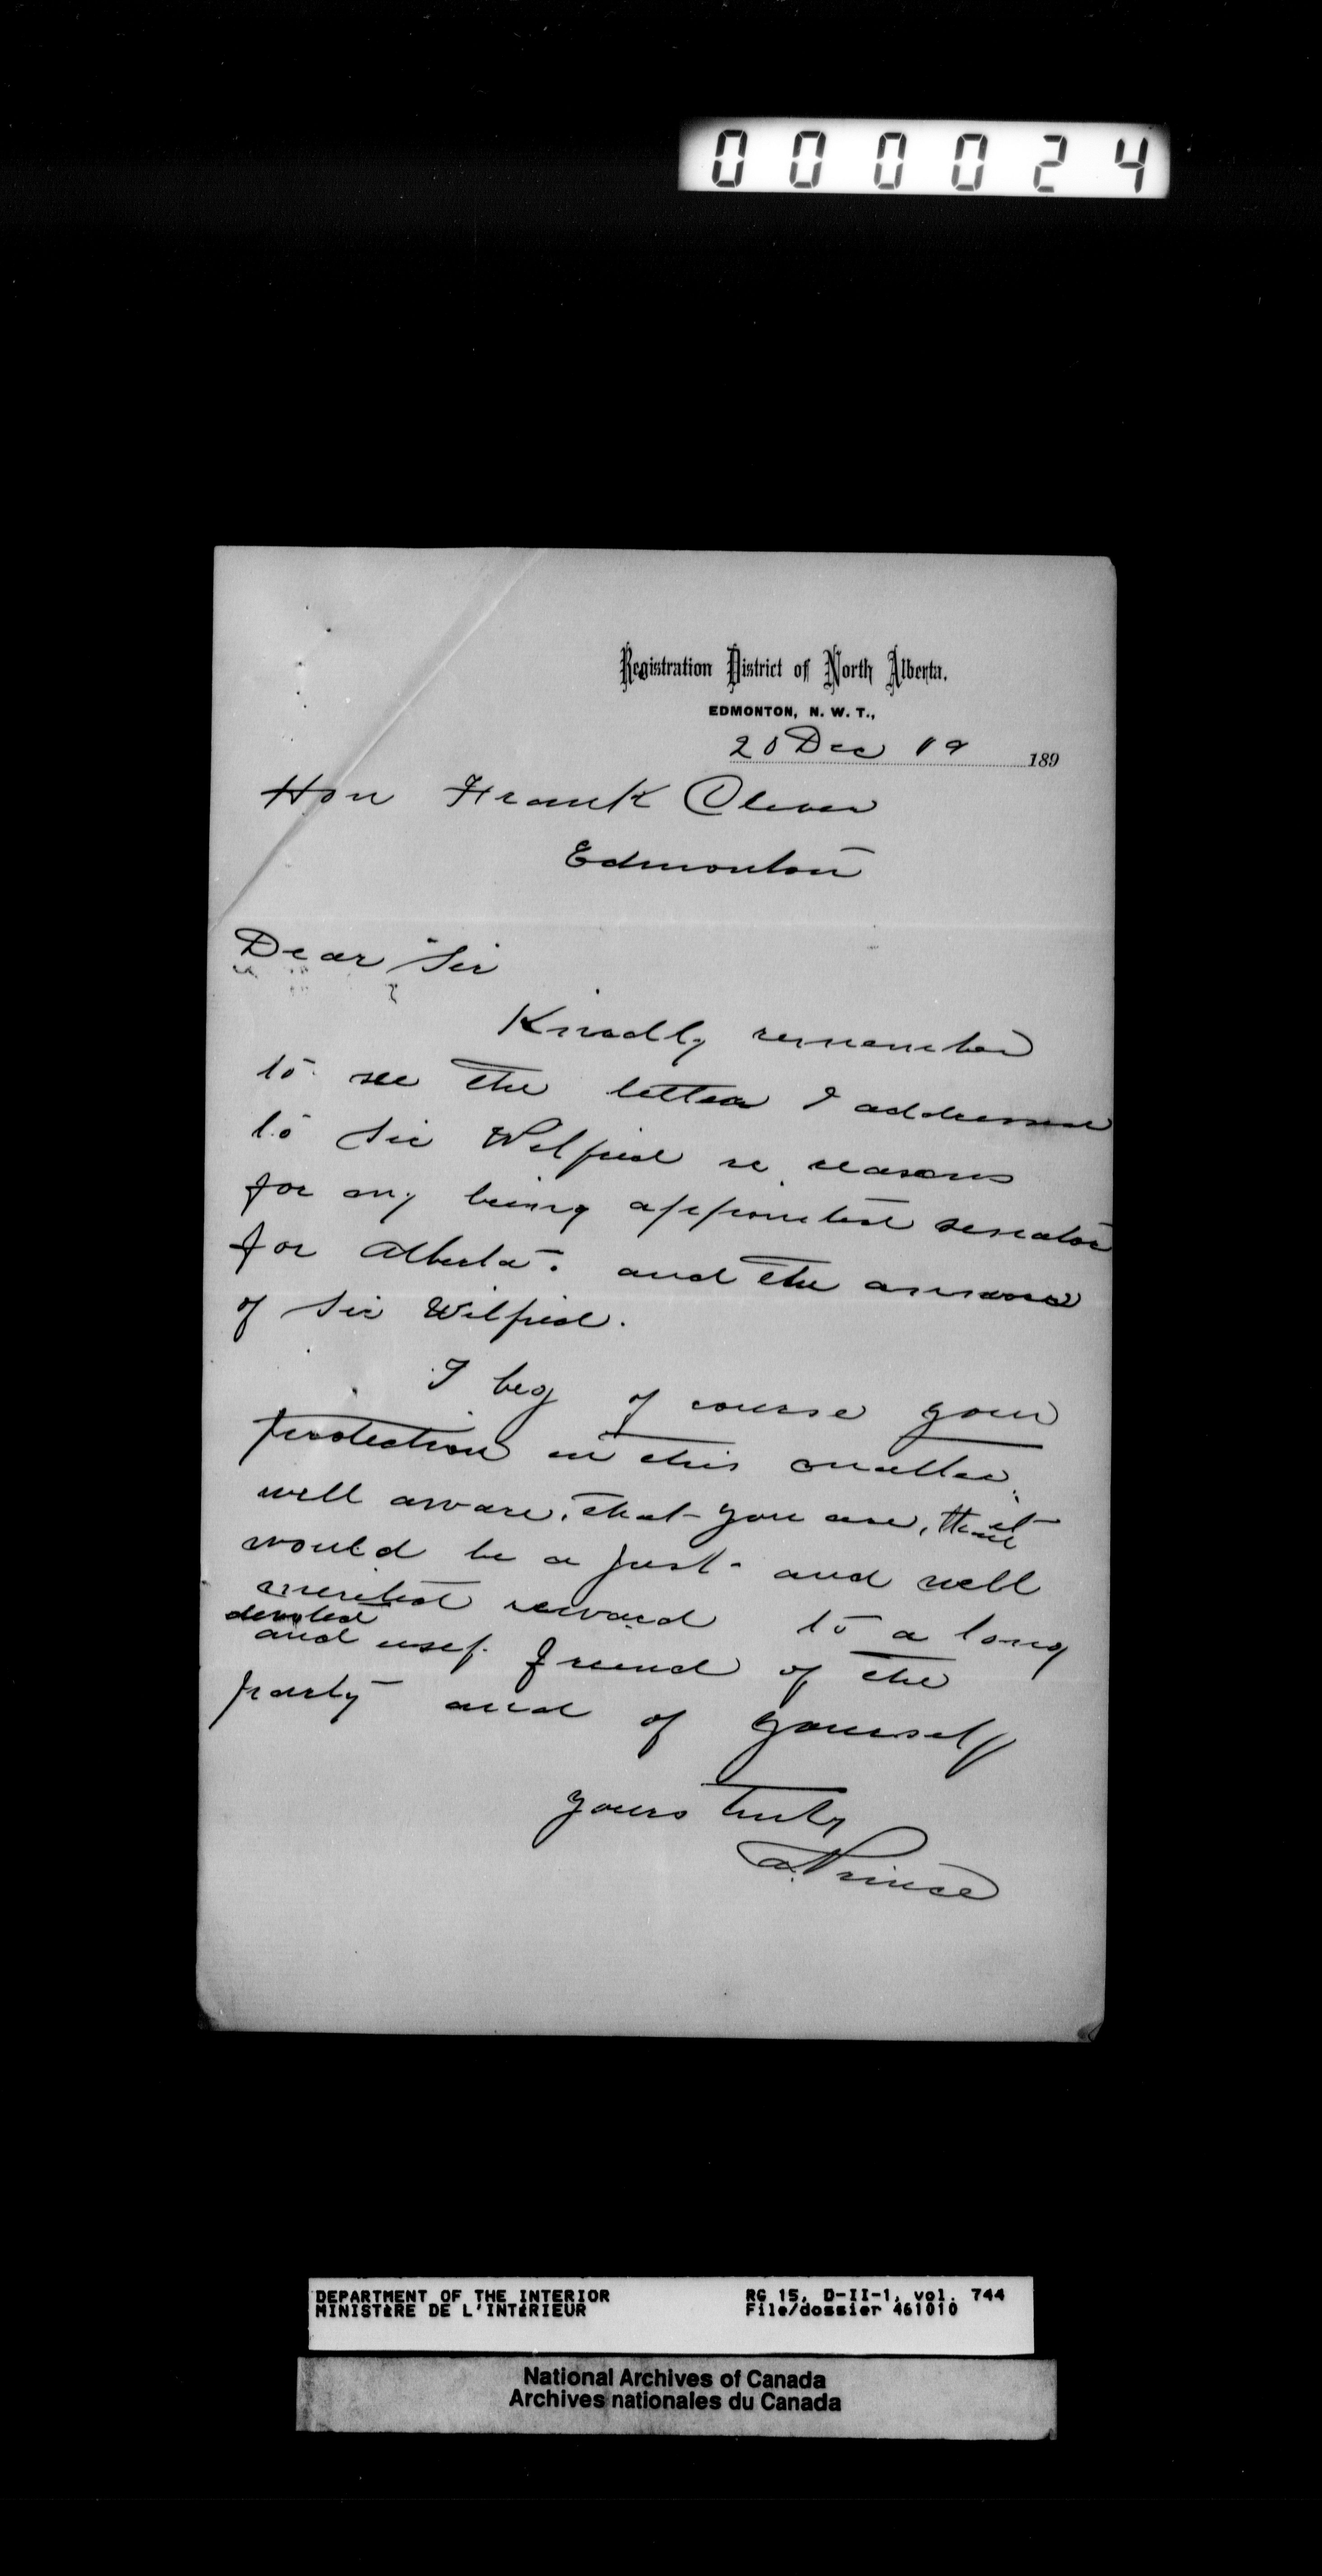 000024
Registration District of North Alberta.
EDMONTON, N. W. T.,
20 Dec 19 189
Hon Frank Oliver
Edmonton
Dear Sir
Kindly remember
to see the letter I addressed
to Sir Wilfrid re reasons
for my being appointed senator
for Alberta. and the answer
of Sir Wilfrid.
I beg of course your
protection in this matter.
well aware, that you are, that it
would be a just and well
merited reward to a long
devoted
and usef. friend of the
party and of yourself
yours truly
A. Prince
DEPARTMENT OF THE INTERIOR RG 15, D-II-1, vol. 744
MINISTÈRE DE L'INTÉRIEUR File/dossier 461010
National Archives of Canada
Archives nationales du Canada